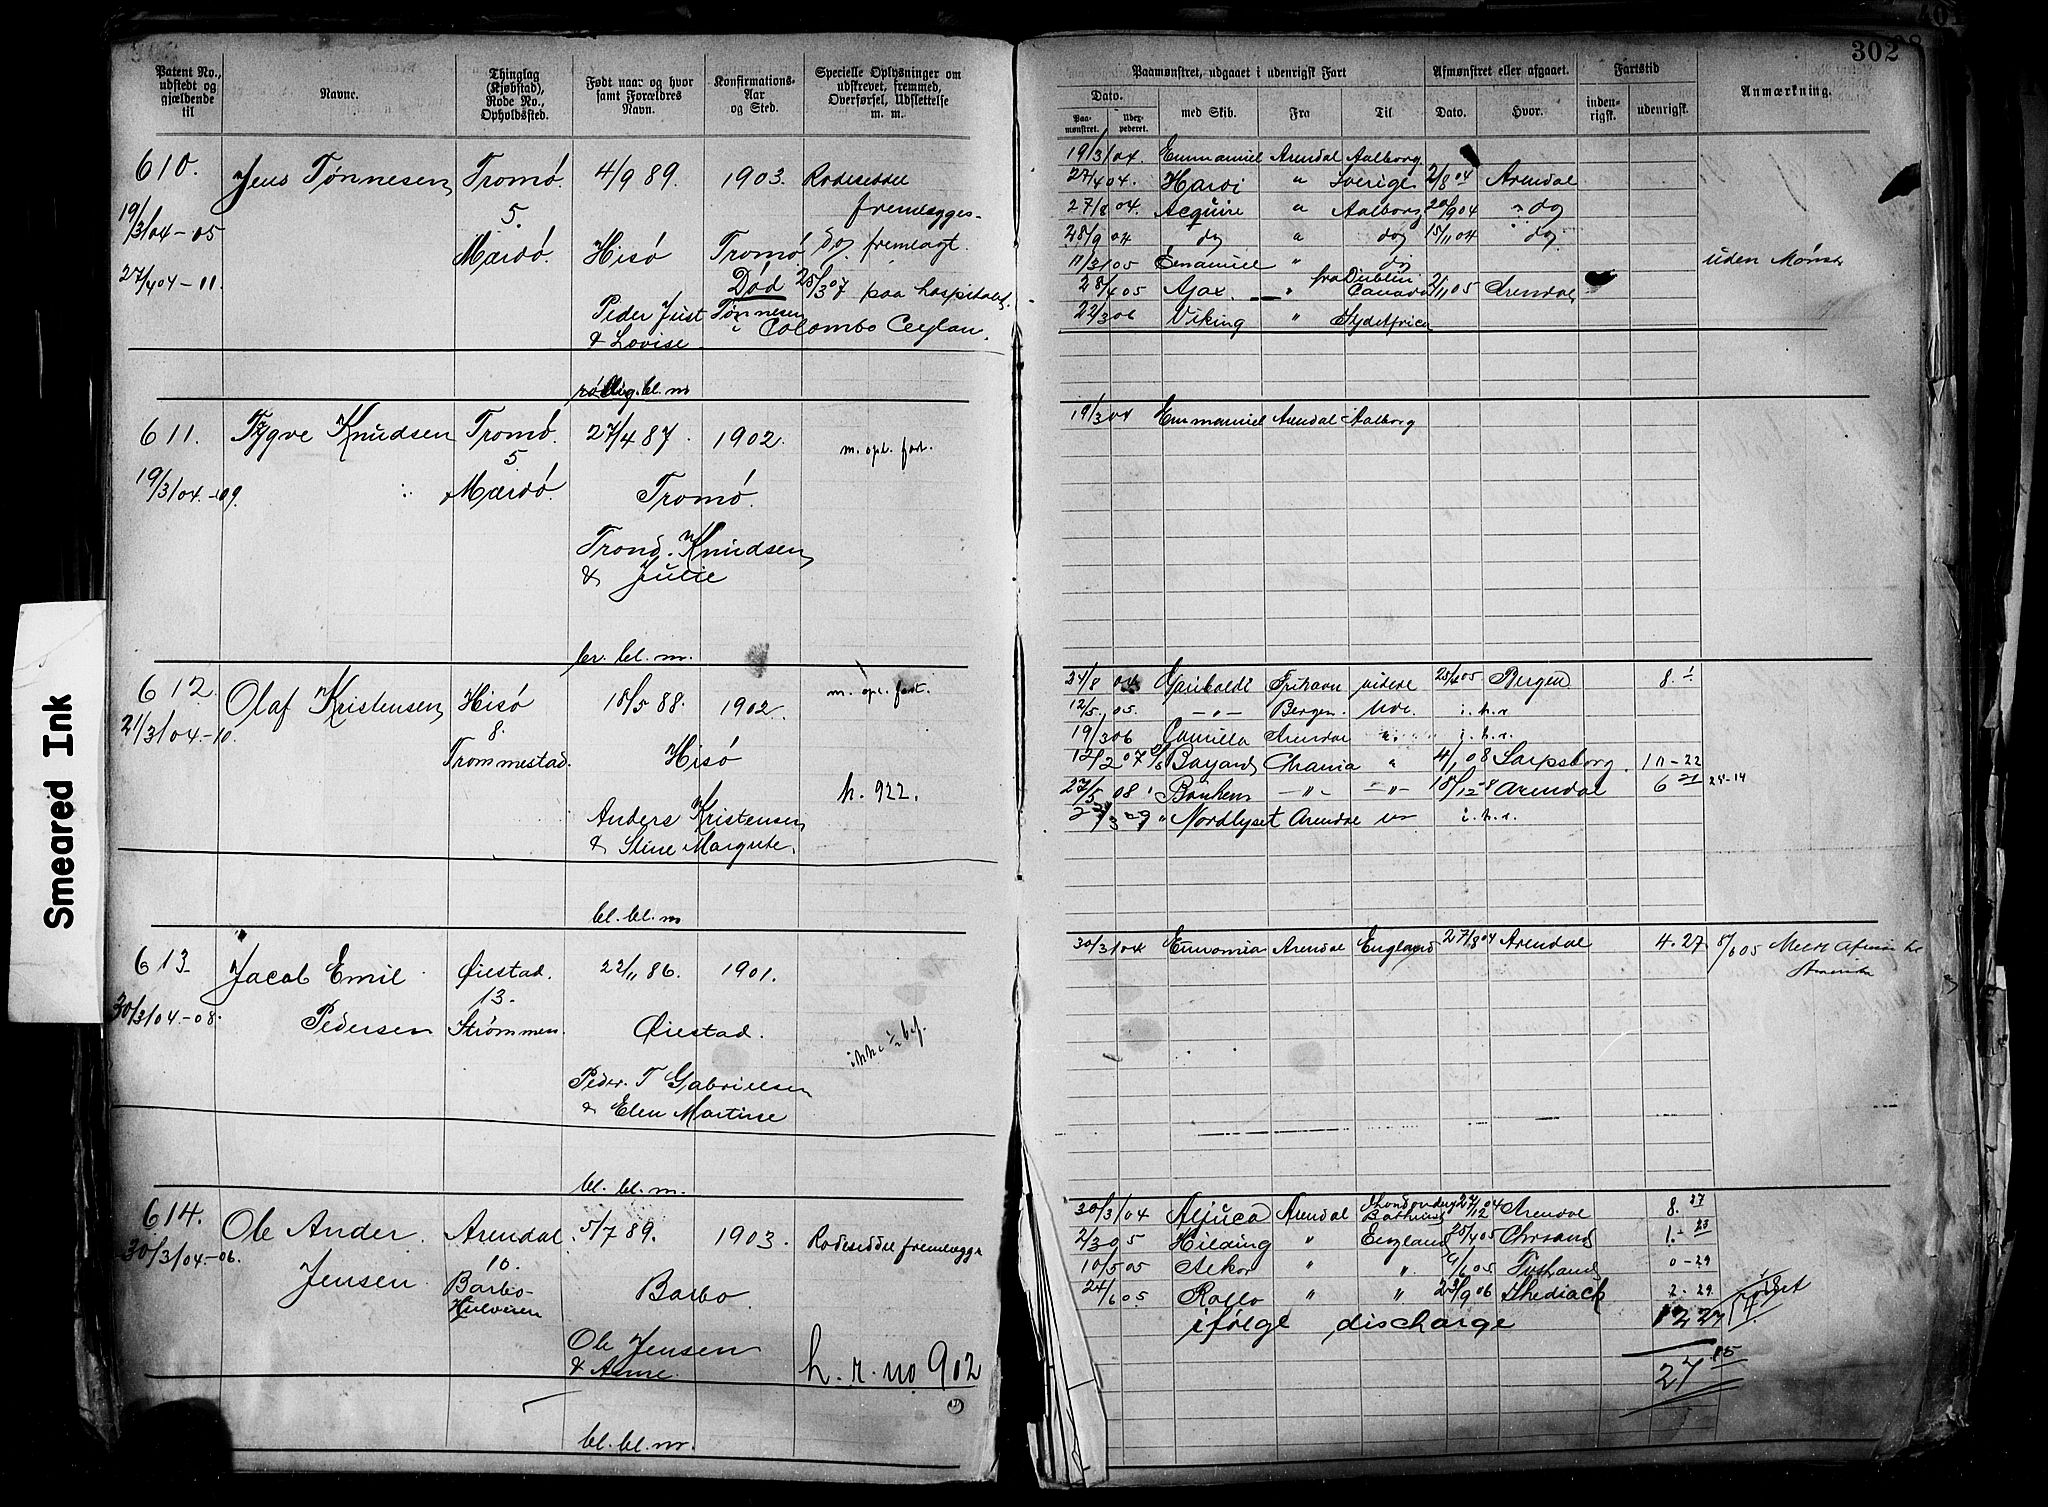 302
Smeared Ink
Patent No., udstedt og gjældende til
Navne.
Thinglag (Kjøbstad), Rode No., Opholdssted.
Født naar og hvor samt Forældres Navn.
Konfirmations-Aar og Sted.
Specielle Oplysninger om udskrevet, fremmed, Overførsel, Udslettelse m. m.
Paamønstret, udgaaet i udenrigsk Fart
Afmønstret eller afgaaet.
Fartstid
Anmærkning.
Dato.
Paa-mønstret.
Udex-pederet.
med Skib.
Fra
Til
Dato.
Hvor.
inden-rigsk.
udenrigsk.
610.
Jens Tønnesen
Tromø.
4/9 89.
1903.
Rodeseddel
fremlægges.
19/3 04-05
5.
Mærdø.
Hisø
Tromø
Do fremlagt.
27/4 04-11
Død 25/3 07 paa hospitalet
i Colombo Ceylan.
Peder Just Tønnesen
& Lovise.
bl. m
19/3 04. Emmanuel Arendal Aalborg.
27/4 04. Hardi " Sverige 2/8 04 Arendal
27/8 04. Acquire " Aalborg 20/9 04 " do
28/9 04 do " do 15/11 04 " do
11/3 05 Emanuel " do uden Mønst
28/4 05 Ajax. " fra Dublin Canada 2/11 05 Arendal
22/3 06 Viking " Sydafrica
611.
Tygve Knudsen
Tromø.
27/4 87.
1902.
m. opl. fart.
5
19/3 04.-09.
Mærdø.
Tromø.
Trond. Knudsen
& Julie
br. bl. m.
19/3 04 Emmanuel Arendal Aalborg
612.
Olaf Kristensen
Hisø
18/5 88.
1902.
m. opl. fart.
21/3 04.-10.
8.
Trommestad.
Hisø
h. 922.
Anders Kristensen
& Stine Margrete.
bl. bl. m
24/8 04 Garibaldi Frihavn videre 25/4 05 Bergen 8.1
12/5 05. -"- Bergen. Ude. i.h.r
19/3 06 Camilla Arendal " i.h.r.
12/2 07 Bayard Chrania " 4/1 08 Sarpsborg. 10-22
27/5 08 -"- -"- 18/12 08 Arendal 6 21 24-14
Nordlyset Arendal i.h.r.
613.
Jacob Emil
Pedersen
Øiestad.
22/11 86.
1901.
13.
30/3 04.-08.
Strømmen.
Øiestad.
ikke i 1/2 bef.
Peder. T Gabrielsen
& Elen Martine
bl. bl. m.
30/3 04 Eunomia Arendal England 27/8 04 Arendal 4.27 8/6 05
614.
Ole Ander
Jensen.
Arendal
5/7 89.
1903.
Rodeseddel fremlægges
30/3 04.-06.
10.
Barbo-
Barbo.
Ole Jensen
& Anne.
h. r. no 902
bl. bl. m.
30/3 04 Aljuca Arendal Londondery Bathurst 24/12 04 Arendal 8. 27
2/3 05 Hilding " England 25/4 05 Chrsand 1.- 23
10/5 05 Aekor " " 9/6 05 0-29
24/6 05 Rollo " " 23/9 06 Shediack 2-29
ifølge discharge 12 27
27 15